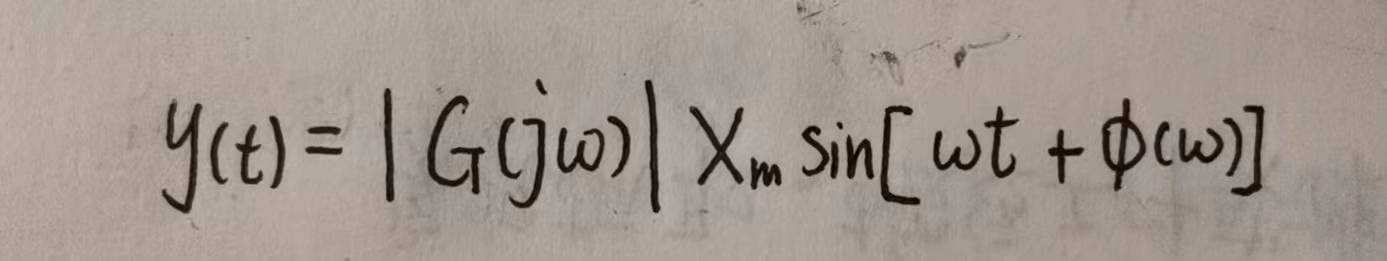 y(t) = |G(jω)| Xₘ sin[ωt + ϕ(ω)]